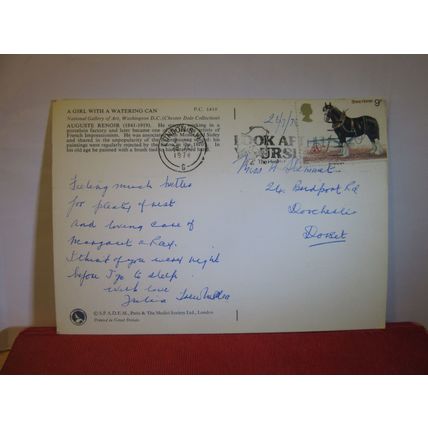 A GIRL WITH A WATERING CAN P.C. 1410
National Gallery of Art, Washington D.C. (Chester Dale Collection)
AUGUSTE RENOIR (1841-1919). He
factory and later became one
French Impressionism. He was associated Monet Sisley
and shared in the unpopularity of the his
paintings were regularly rejected by the
In his old age he painted with a brush
LONDON
1978
LOOK AFT
YOURSELF
Shire Horse
9p
Feeling much better
for plenty of rest
and loving care of
Margaret & Ray.
I think of you every night
before I go to sleep
with love
Miss A
26, Bridport Rd
Dorchester
Dorset
© S.P.A.D.E.M., Paris & The Medici Society Ltd., London
Printed in Great Britain